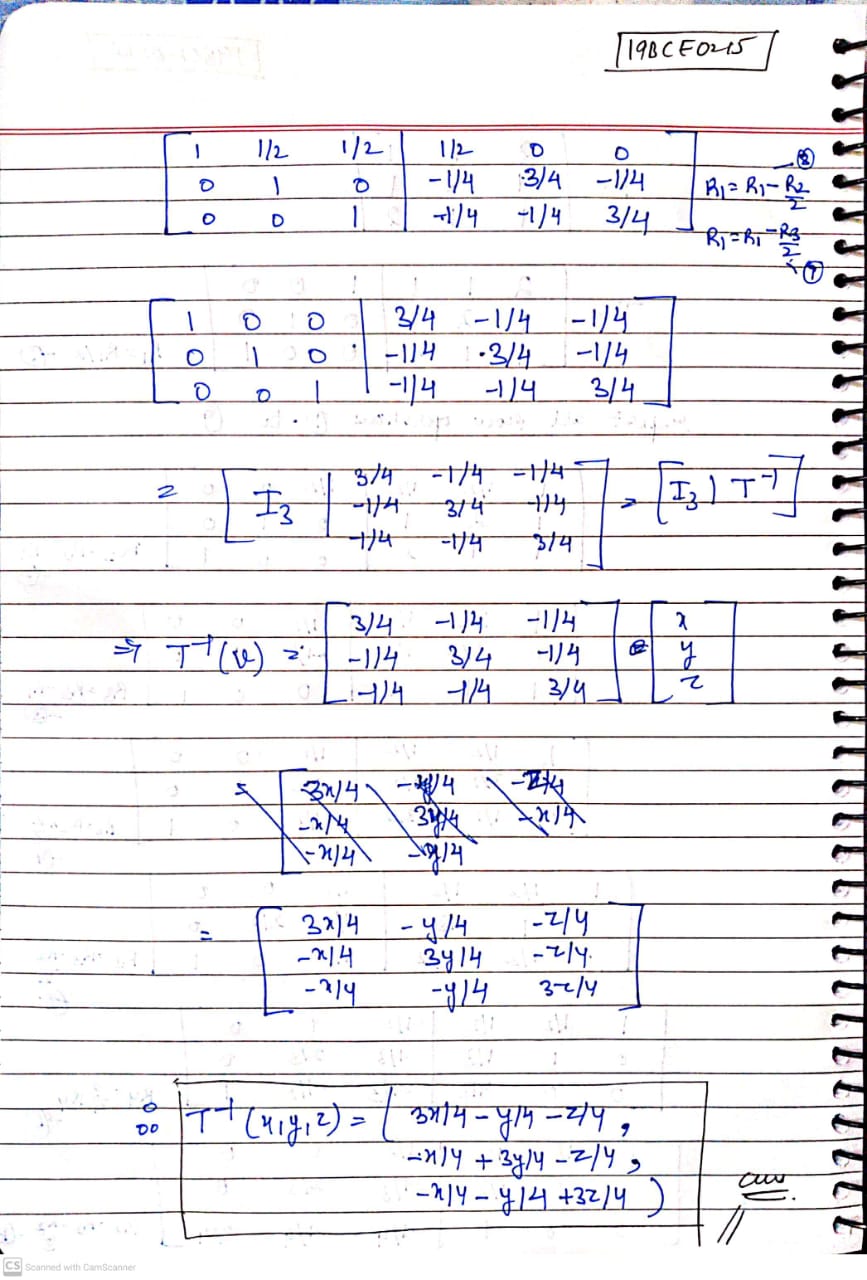 19BCE0215
1 1/2 1/2 | 1/2 0 0
⑧
0 1 0 | -1/4 3/4 -1/4 R₁ = R₁ - R₂/2
0 0 1 | -1/4 -1/4 3/4 R₁ = R₁ - R₃/2
1 0 0 | 3/4 -1/4 -1/4
0 1 0 | -1/4 3/4 -1/4
0 0 1 | -1/4 -1/4 3/4
= [ I₃ | 3/4 -1/4 -1/4
-1/4 3/4 -1/4
-1/4 -1/4 3/4 ] = [I₃ | T⁻¹]
3/4 -1/4 -1/4 x
⇒ T⁻¹(v) = -1/4 3/4 -1/4 y
-1/4 -1/4 3/4 z
= 3x/4 -y/4 -z/4
-x/4 3y/4 -x/4
-x/4 -y/4
3x/4 -y/4 -z/4
= -x/4 3y/4 -z/4
-x/4 -y/4 3z/4
∴ T⁻¹(x,y,z) = ( 3x/4 - y/4 - z/4 ,
-x/4 + 3y/4 - z/4 ,
-x/4 - y/4 + 3z/4 )
ans
CS Scanned with CamScanner